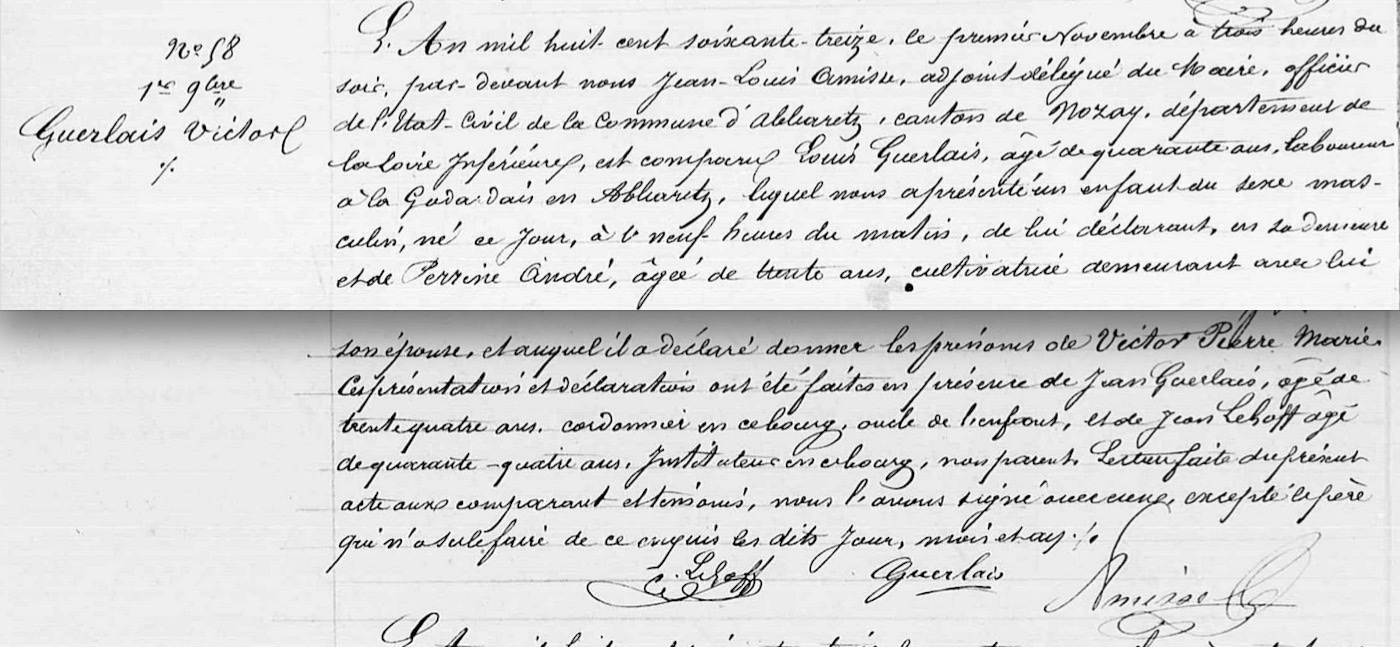 No 58
1er 9bre
Guerlais Victor
L'An mil huit cent soixante-treize, le premier Novembre à trois heures du
soir, par-devant nous Jean-Louis Amisse, adjoint délégué du Maire, officier
de l'Etat-Civil de la Commune d'Abbaretz, canton de Nozay, département de
la Loire Inférieure, est comparu Louis Guerlais, âgé de quarante ans, laboureur
à la Goda-dais en Abbaretz, lequel nous a présenté un enfant du sexe mas-
culin, né ce Jour, à neuf heures du matin, de lui déclarant, en sa demeure
et de Perrine André, âgée de trente ans, cultivatrice demeurant avec lui
son épouse, et auquel il a déclaré donner les prénoms de Victor Pierre Marie.
Ces présentation et déclaration ont été faites en présence de Jean Guerlais, âgé de
trente quatre ans, cordonnier en ce bourg, oncle de l'enfant, et de Jean Lehoff âgé
de quarante-quatre ans, Instituteur en ce bourg, non parent. Lecture faite du présent
acte aux comparant et témoins, nous l'avons signé avec eux, excepté le père
qui n'a su le faire de ce enquis les dits Jour, mois et an ./.
Lehoff Guerlais Amisse